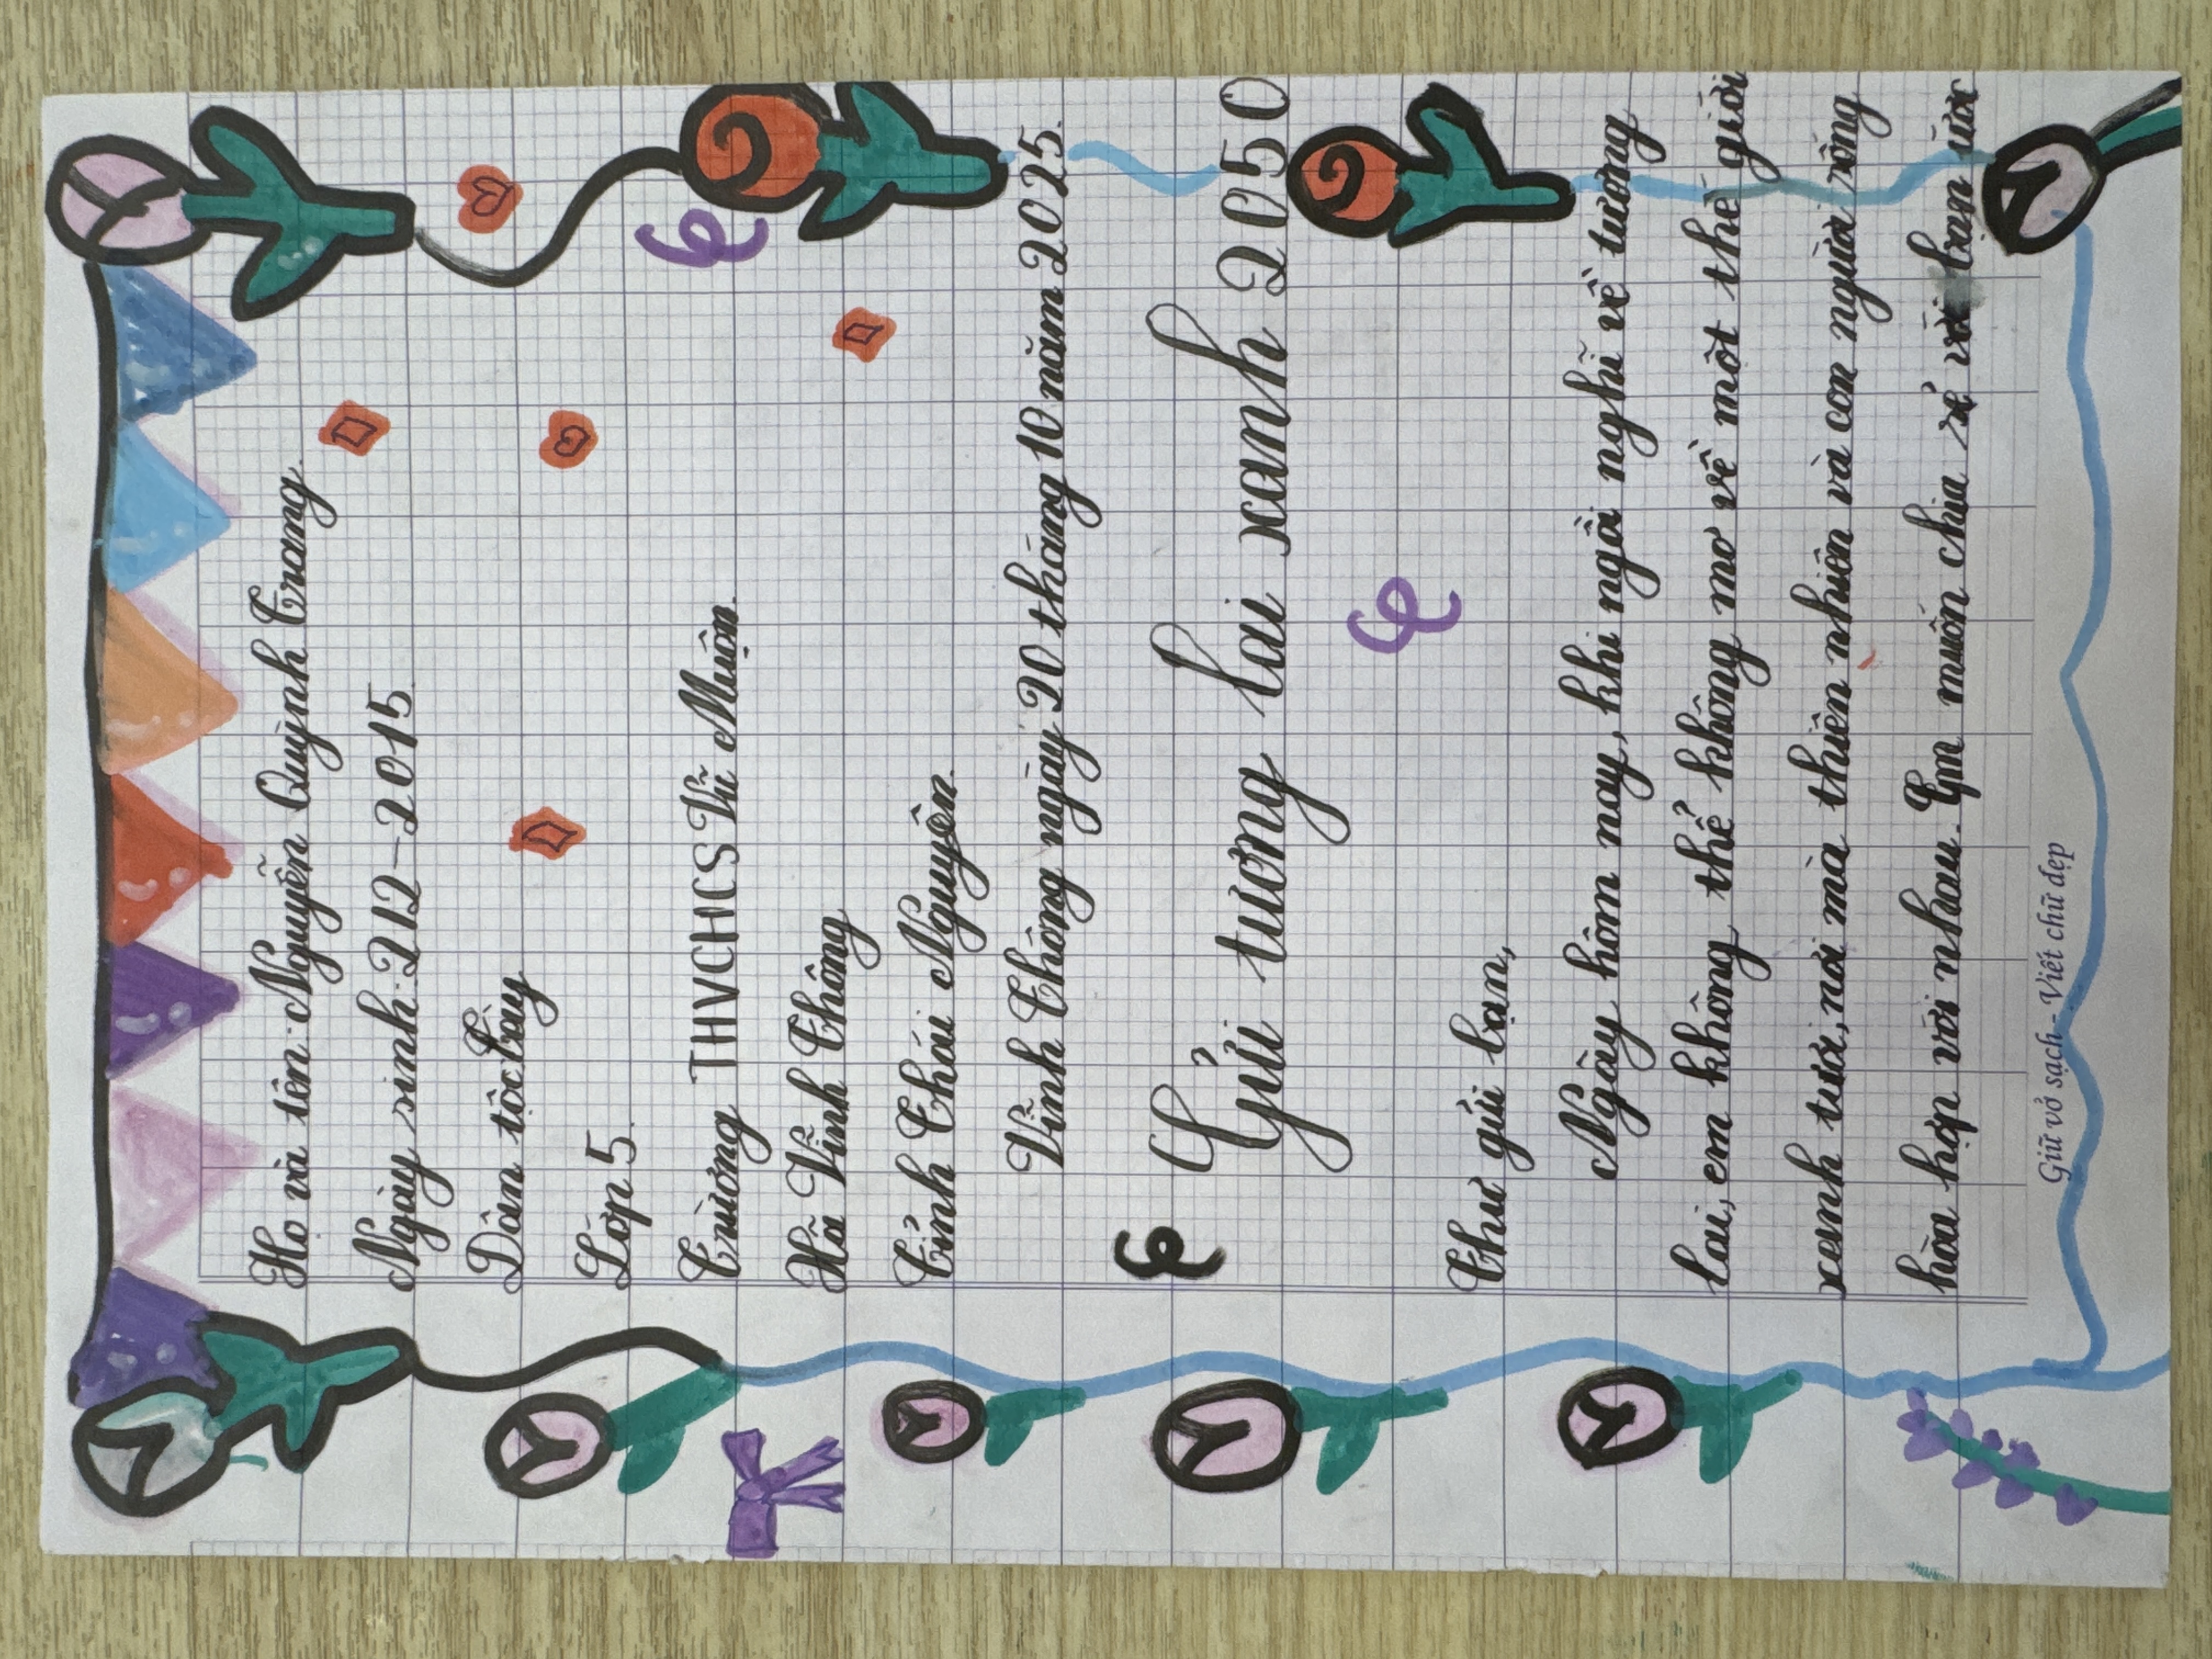 Họ và tên: Nguyễn Quỳnh Trang.
Ngày sinh: 212-2015.
Dân tộc tày
Lớp 5.
Trường THVCHCS Vũ Muộn.
Xã Vĩnh Thông
Tỉnh Thái Nguyên.
Vĩnh Thông ngày 20 tháng 10 năm 2025.
Gửi tương lai xanh 2050
Thư gửi bạn,
Ngày hôm nay, khi ngồi nghĩ về tương
lai, em không thể không mơ về một thế giới
xenh tươi, nơi mà thiên nhiên và con người sống
hòa hợp với nhau. Em muốn chia sẻ với bạn ước
Giữ vở sạch - Viết chữ đẹp